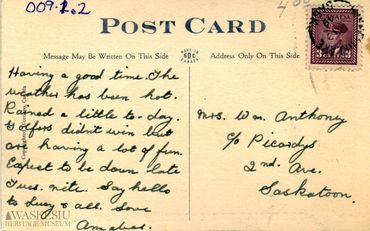 009.2.2
POST CARD
Message May Be Written On This Side
MADE IN CANADA
Address Only On This Side
Having a good time. The
weather has been hot.
Rained a little to-day.
Golfers didn't win but
are having a lot of fun.
Expect to be down late
Tues. nite. Say hello
to Lucy & all. Love
Mrs. Wm. Anthony
c/o Picardys
2nd Ave.
Saskatoon.
CANADA
WASKESIU
HERITAGE MUSEUM